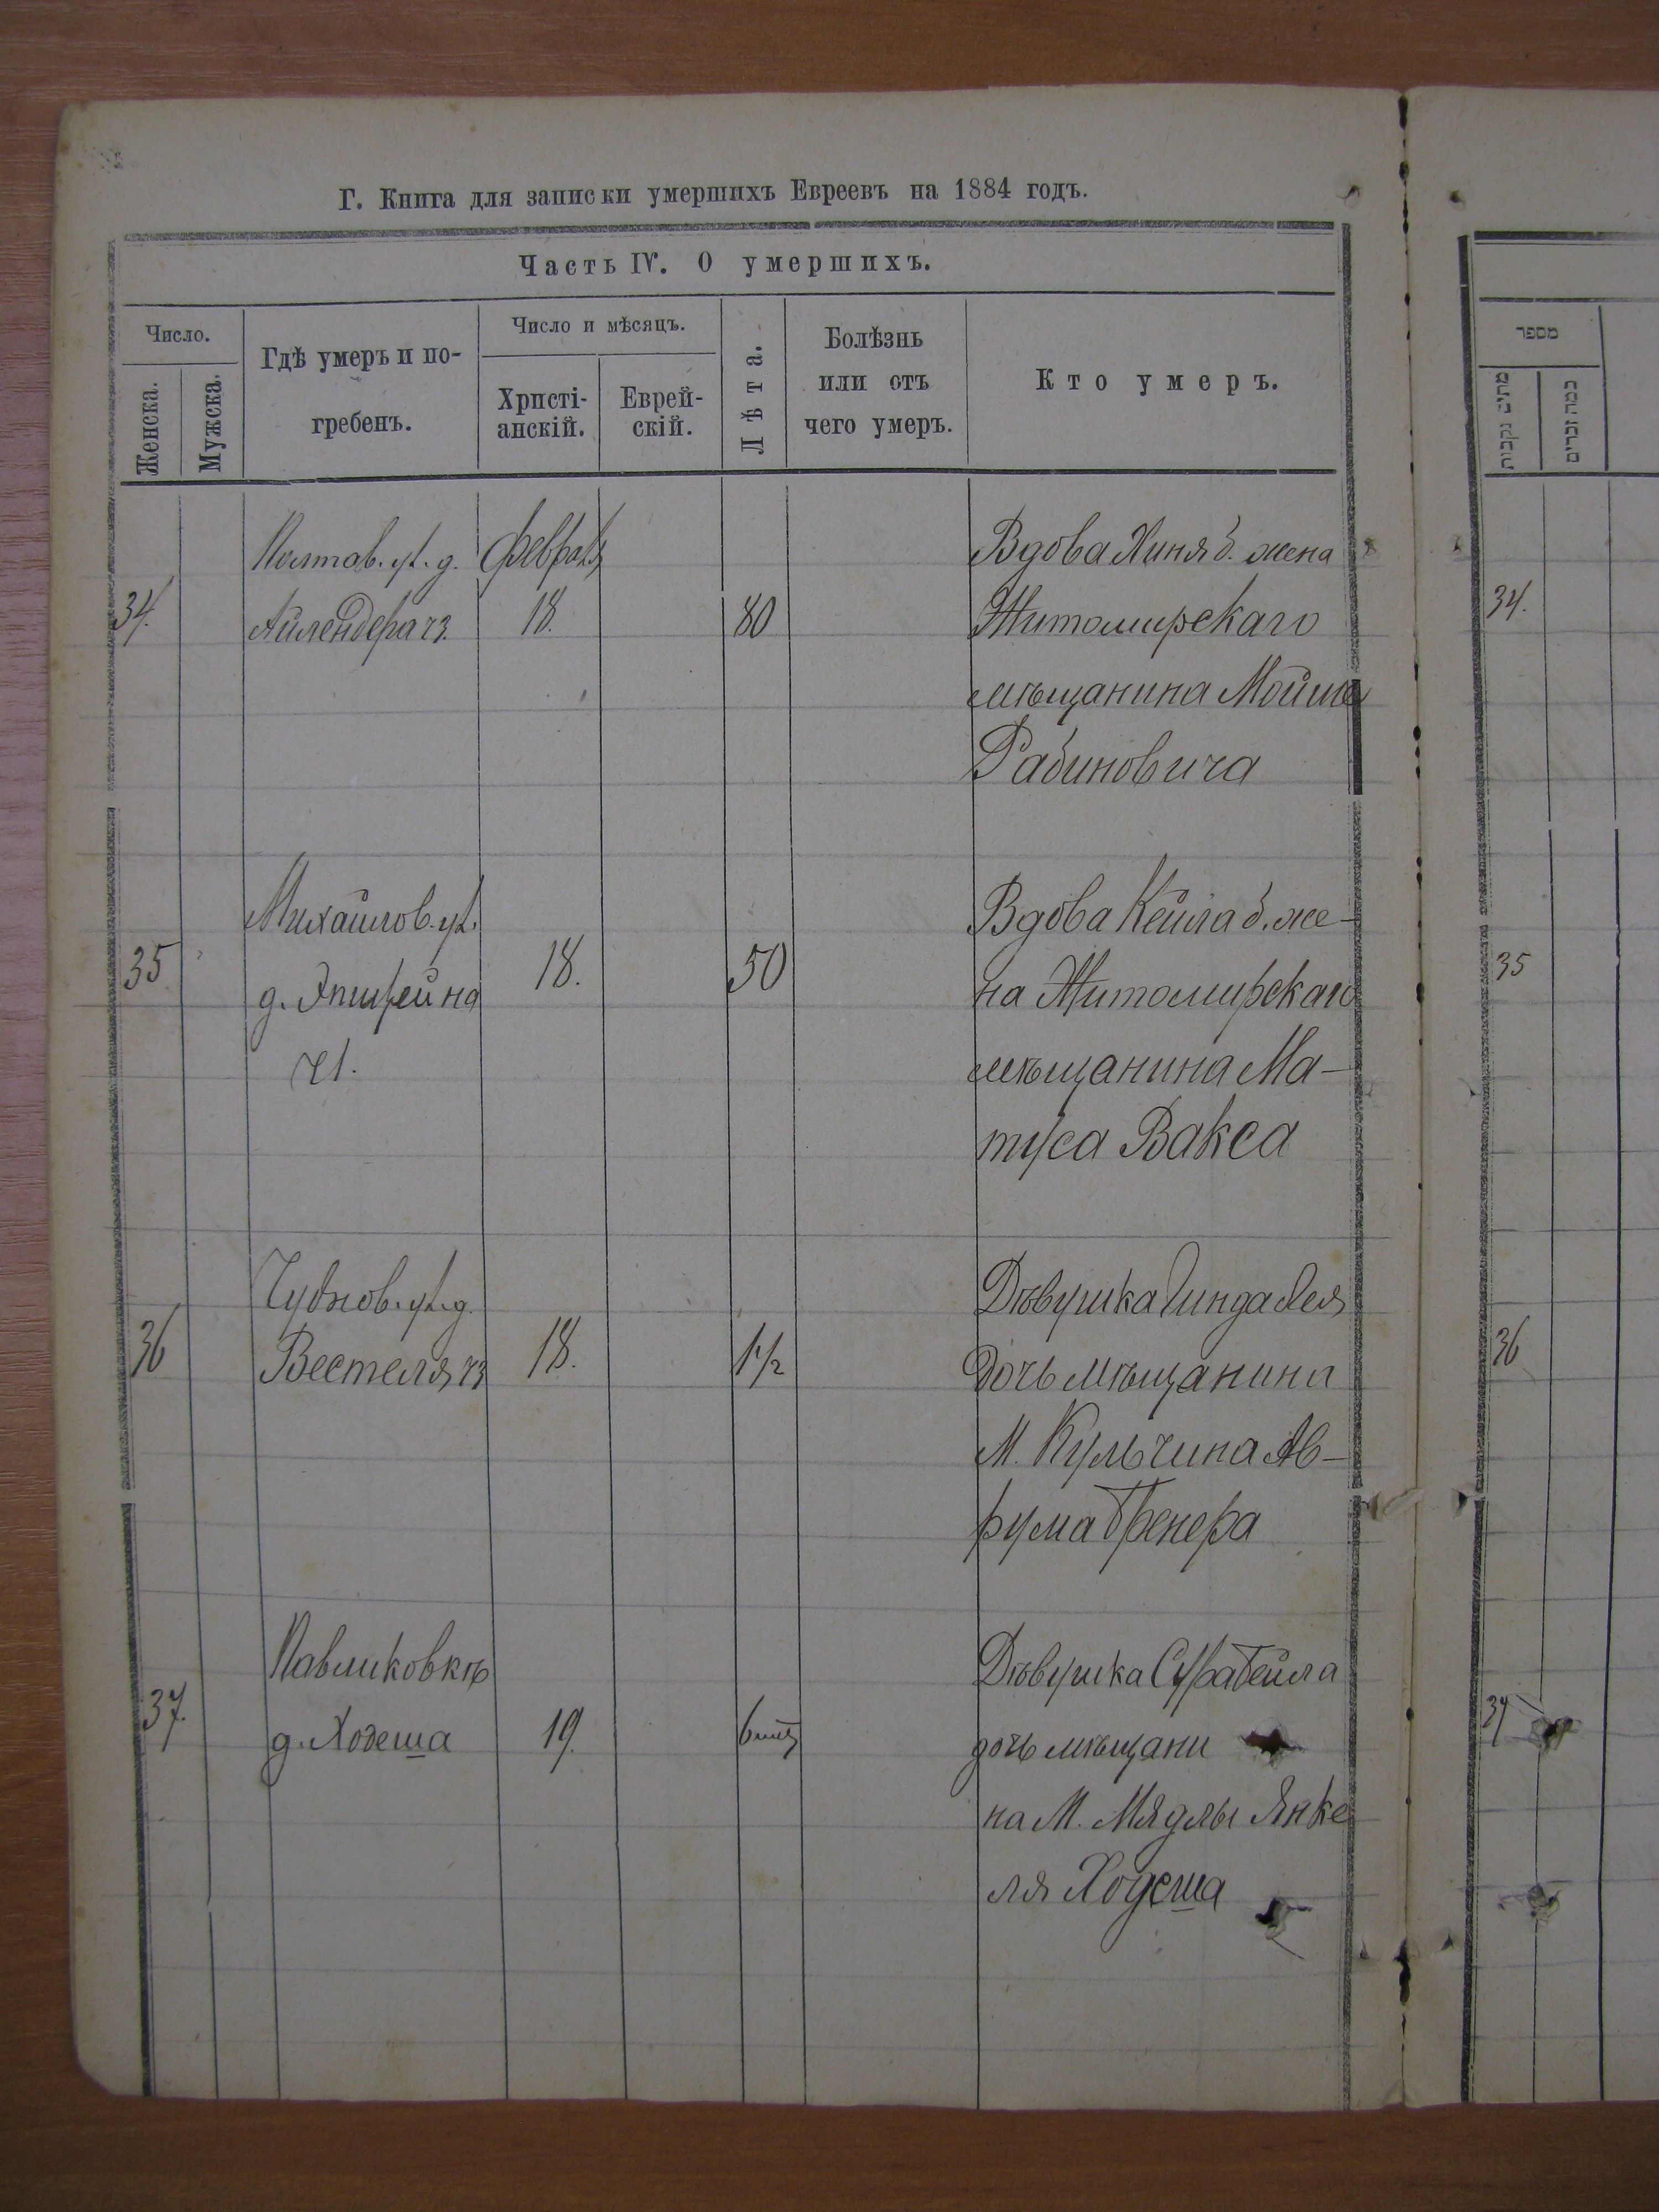 Г. Книга для записки умершихъ Евреевъ на 1884 годъ.
Часть IV. О умершихъ.
Число.
Женска.
Мужска.
Гдѣ умеръ и по-
гребенъ.
Число и мѣсяцъ.
Христі-
анскій.
Еврей-
скій.
Лѣта.
Болѣзнь
или отъ
чего умеръ.
Кто умеръ.
מספר
מתים נקבות
כמה זכרים
34.
Полтав. ул. д.
Айлендера ч3.
Февраля
18.
80
Вдова Хиня б. жена
Житомирскаго
мѣщанина Мойше
Рабиновича
34.
35
Михайлов. ул.
д. Эпштейна
ч1.
18.
50
Вдова Кейла б. же-
на Житомирскаго
мѣщанина Ма-
туса Вакса
35
36
Чуднов. ул. д.
Вестеля ч3
18.
1 1/2
Дѣвушка Гинда Лея
дочь мѣщанина
М. Кульчина Ав-
рума Тренера
36
37.
Павликовкѣ
д. Ходеша
19.
6 мѣс
Дѣвушка Сура Бейла
дочь мѣщани
на М. Мядлы Янке
ля Ходеша
37